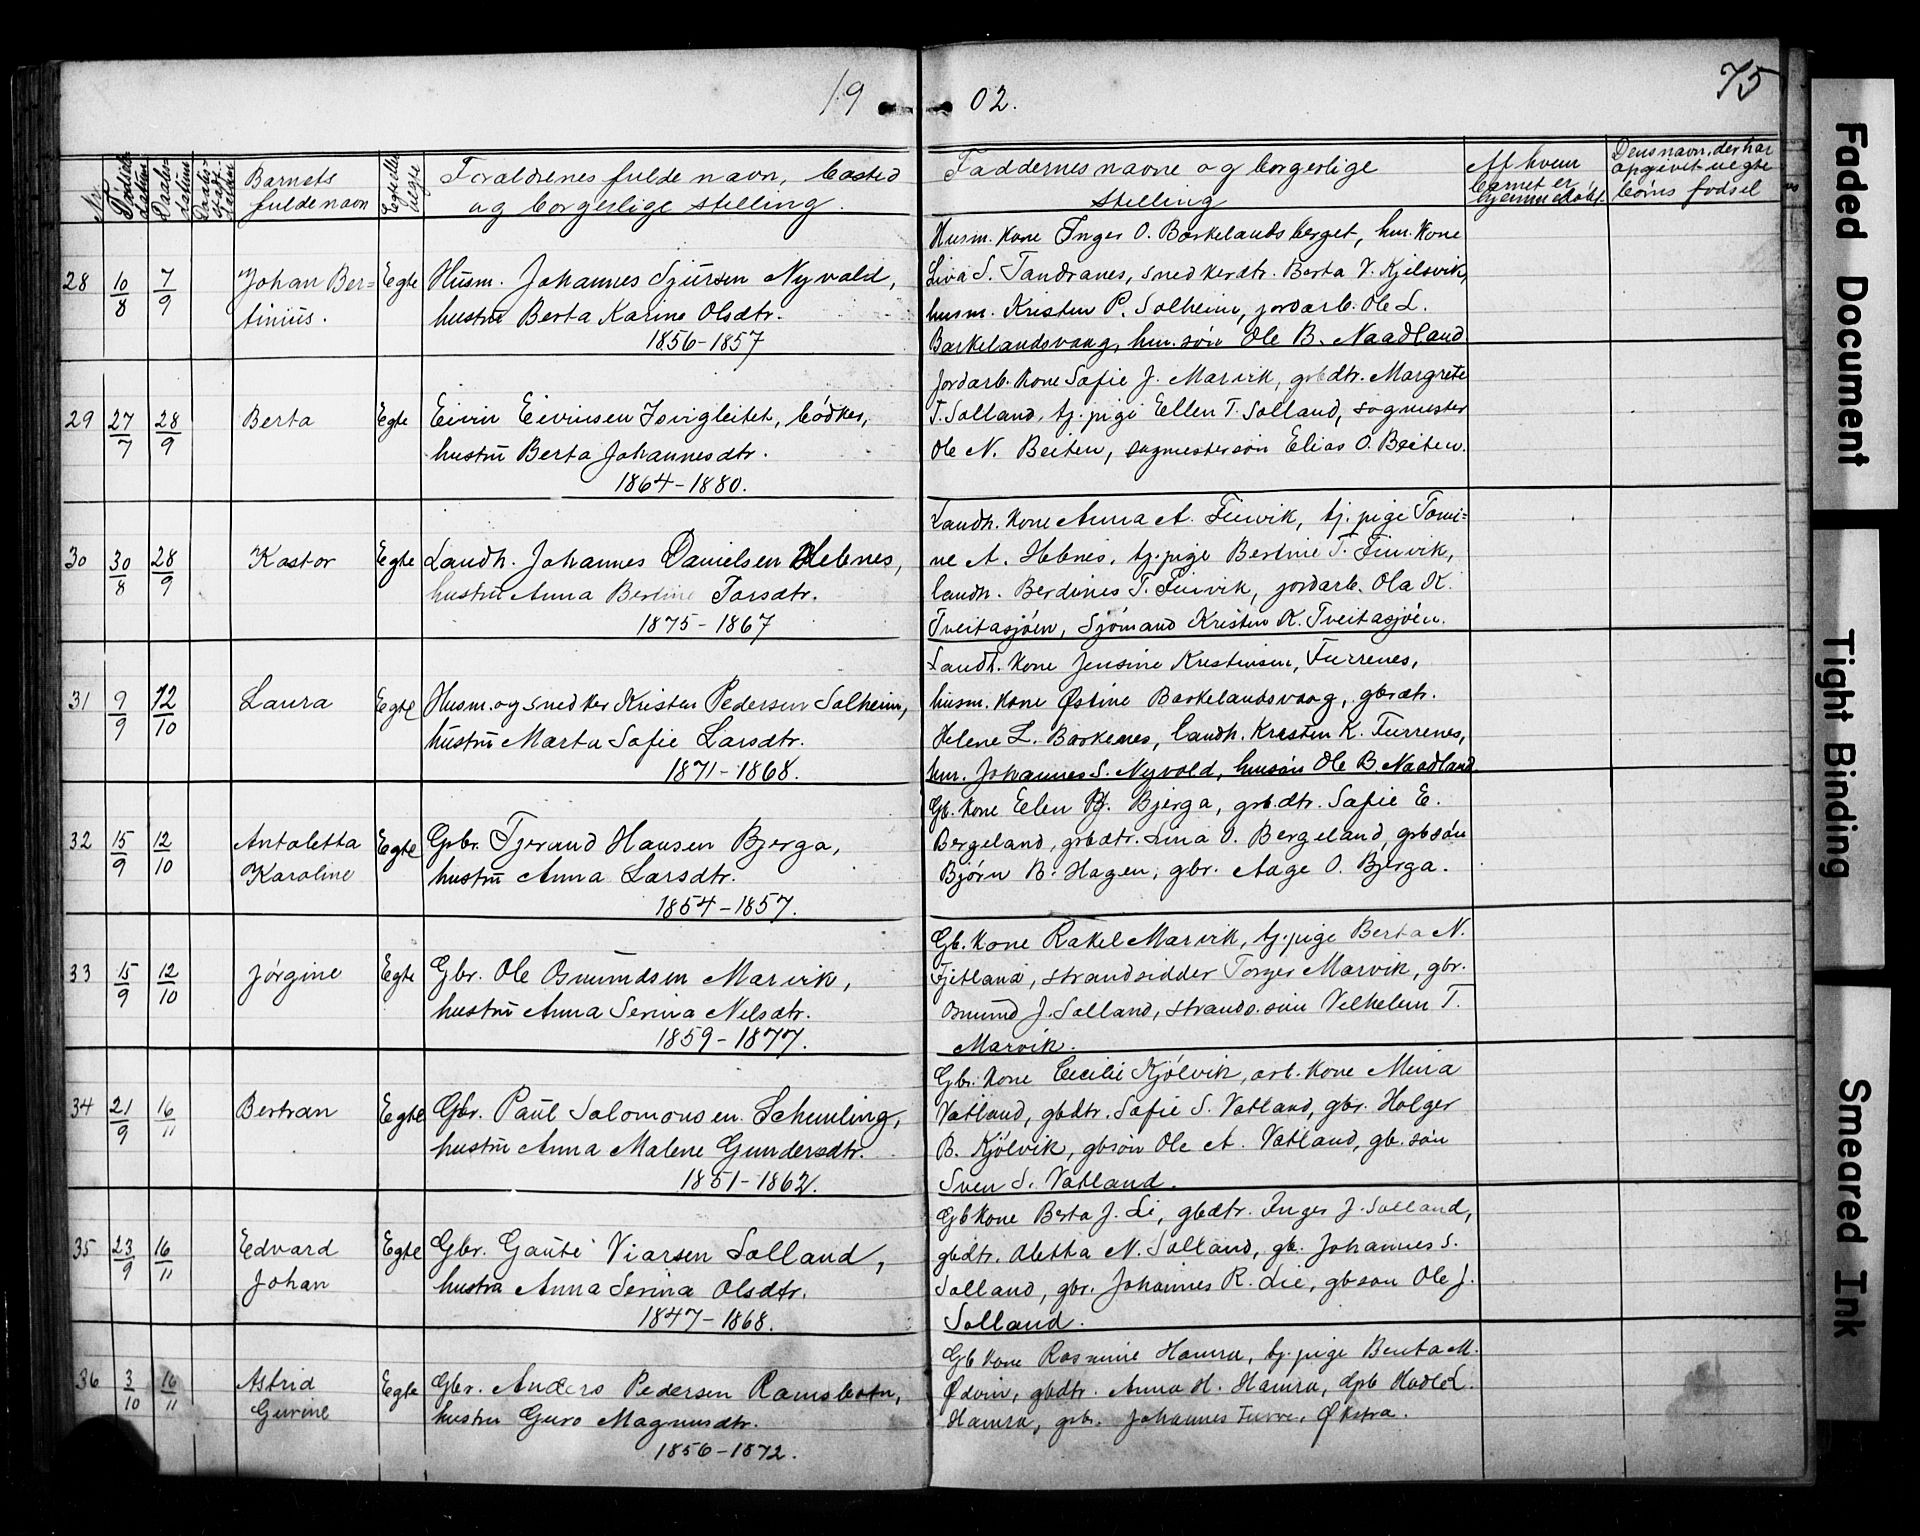 19 02.
75
No.
Fødsels-datum
Daabs-datum
Barnets fulde navn
Egte eller uegte
Forældrenes fulde navn, bosted og borgerlige stilling.
Faddernes navne og borgerlige stilling
Af hvem barnet er hjemmedøbt.
Dens navn, der har opgivet uegte børns fødsel
28 10/8 7/9 Johan Ber=
tinius.
Egte
Husm. Johannes Sjursen Nyvold,
hustru Berta Karine Olsdtr.
1856-1857
Husm. kone Inger O. Barkelandsberget, hm. kone
Liva S. Tandranes, snedkerdtr. Berta V. Kjilsvik,
husm. Kristen P. Solheim, jordarb. Ole L.
Barkelandsvaag, hm. søn Ole B. Naadland
29 27/7 28/9 Berta
Egte
Eivin Eivinsen Isvigleitet, bødker,
hustru Berta Johannesdtr.
1864-1880.
Jordarb. kone Sofie J. Marvik, grbdtr. Margrete
T. Solland, tj. pige Ellen T. Solland, sagmester
Ole N. Beiten, sagmestersøn Elias O. Beiten.
30 30/8 28/9 Kastor
Egte
Landh. Johannes Danielsen Hebnes,
hustru Anna Bertine Torsdtr.
1875-1867
Landh. kone Anna A. Finvik, tj. pige Tomi=
ne A. Hebnes, tj. pige Bertine T. Finvik,
landh. Berdines T. Finvik, jordarb. Ola K.
Tveitasjøen, Sjømand Kristen K. Tveitasjøen.
31 9/9 12/10 Laura
Egte
Husm. og snedker Kristen Pedersen Solheim,
hustru Marta Sofie Larsdtr.
1871-1868.
Landh. kone Jensine Kristensen, Furrenes,
husm. kone Østine Barkelandsvaag, gbrdtr.
Helene L. Barkenes, landh. Kristen K. Furrenes,
hm. Johannes S. Nyvold, hmsøn Ole B. Naadland.
32 15/9 12/10 Antoletta
Karoline
Egte
Gbr. Tjerand Hansen Bjerga,
hustru Anna Larsdtr.
1854-1857.
Gb. kone Elen B. Bjerga, grb.dtr. Sofie E.
Bergeland, grbdtr. Lina O. Bergeland, grbsøn
Bjørn B. Hagen, gbr. Aage O. Bjerga.
33 15/9 12/10 Jørgine
Egte
Gbr. Ole Osmundsen Marvik,
hustru Anna Serina Nilsdtr.
1859-1877.
Gb. kone Rakel Marvik, tj. pige Berta N.
Fjetland, strandsidder Torger Marvik, gbr.
Osmund J. Solland, strands. søn Velhelm T.
Marvik.
34 21/9 16/11 Bertran
Egte
Gbr. Paul Salomonsen Schmling,
hustru Anna Malene Gundersdtr.
1851-1862.
Gbr. kone Cecilie Kjølvik, arb. kone Mina
Vatland, gbdtr. Sofie S. Vatland, gbr. Holger
B. Kjølvik, gbsøn Ole A. Vatland, gb. søn
Sven S. Vatland.
35 23/9 16/11 Edvard
Johan
Egte
Gbr. Gaute Viarsen Solland,
hustru Anna Serina Olsdtr.
1847-1868.
Gb kone Berta J. Li, gbdtr. Inger J. Solland,
gbdtr. Oletta N. Solland, gb. Johannes S.
Solland, gbr. Johannes R. Lie, gbsøn Ole J.
Solland.
36 3/10 16/11 Astrid
Gurine
Egte
Gbr. Anders Pedersen Ramsbotn,
hustru Guro Magnusdtr.
1856-1872.
Gb kone Rasmine Hamra, tj. pige Benta M.
Ødvin, gbdtr. Anna H. Hamra, dpb Hadle L.
Hamra, grb. Johannes Turve, Økstra.
Faded Document
Tight Binding
Smeared Ink